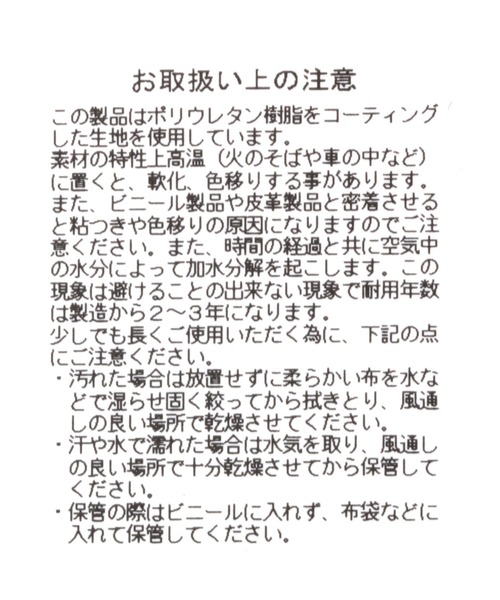 お取扱い上の注意
この製品はポリウレタン樹脂をコーティング
した生地を使用しています。
素材の特性上高温（火のそばや車の中など）
に置くと、軟化、色移りする事があります。
また、ビニール製品や皮革製品と密着させる
と粘つきや色移りの原因になりますのでご注
意ください。また、時間の経過と共に空気中
の水分によって加水分解を起こします。この
現象は避けることの出来ない現象で耐用年数
は製造から２～３年になります。
少しでも長くご使用いただく為に、下記の点
にご注意ください。
・汚れた場合は放置せずに柔らかい布を水な
どで湿らせ固く絞ってから拭きとり、風通
しの良い場所で乾燥させてください。
・汗や水で濡れた場合は水気を取り、風通し
の良い場所で十分乾燥させてから保管して
ください。
・保管の際はビニールに入れず、布袋などに
入れて保管してください。